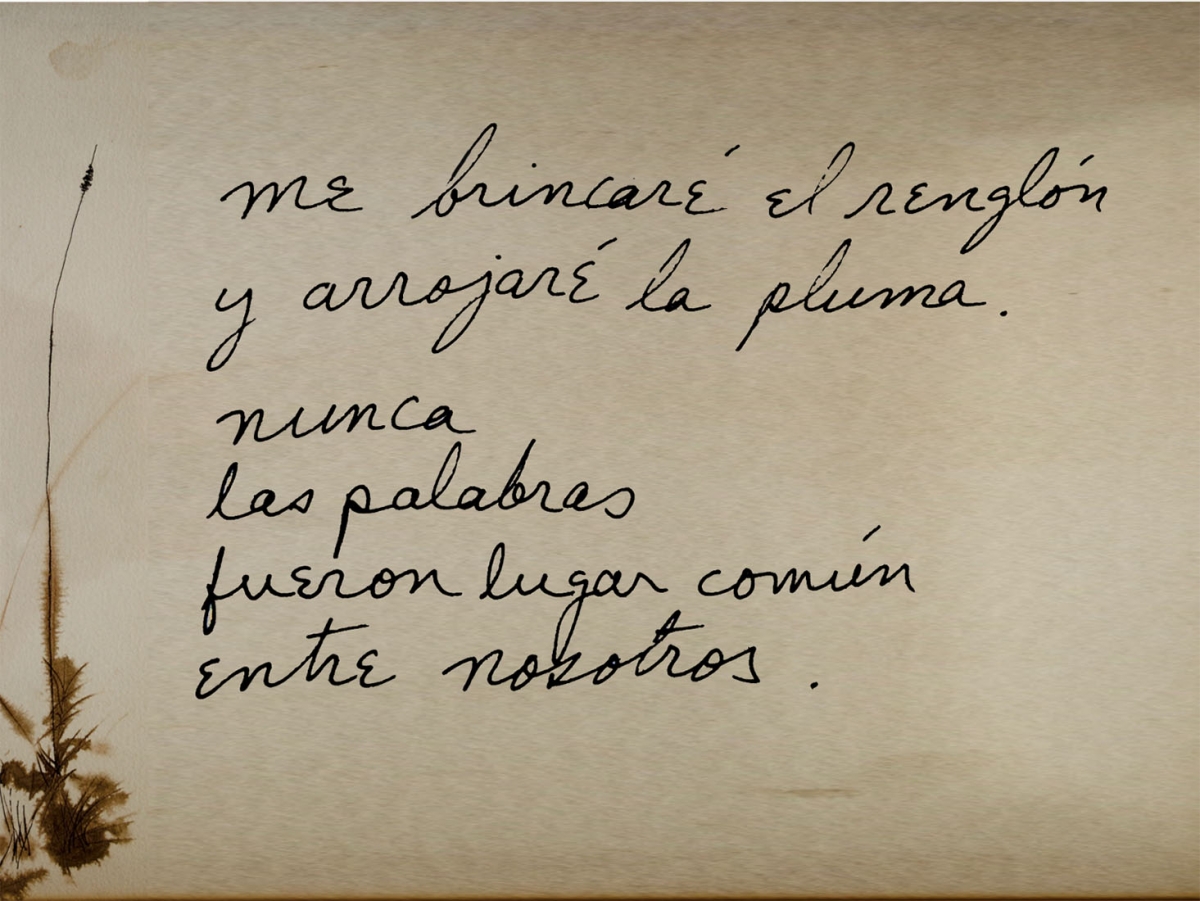 me brincaré el renglón
y arrojaré la pluma.
nunca
las palabras
fueron lugar común
entre nosotros.